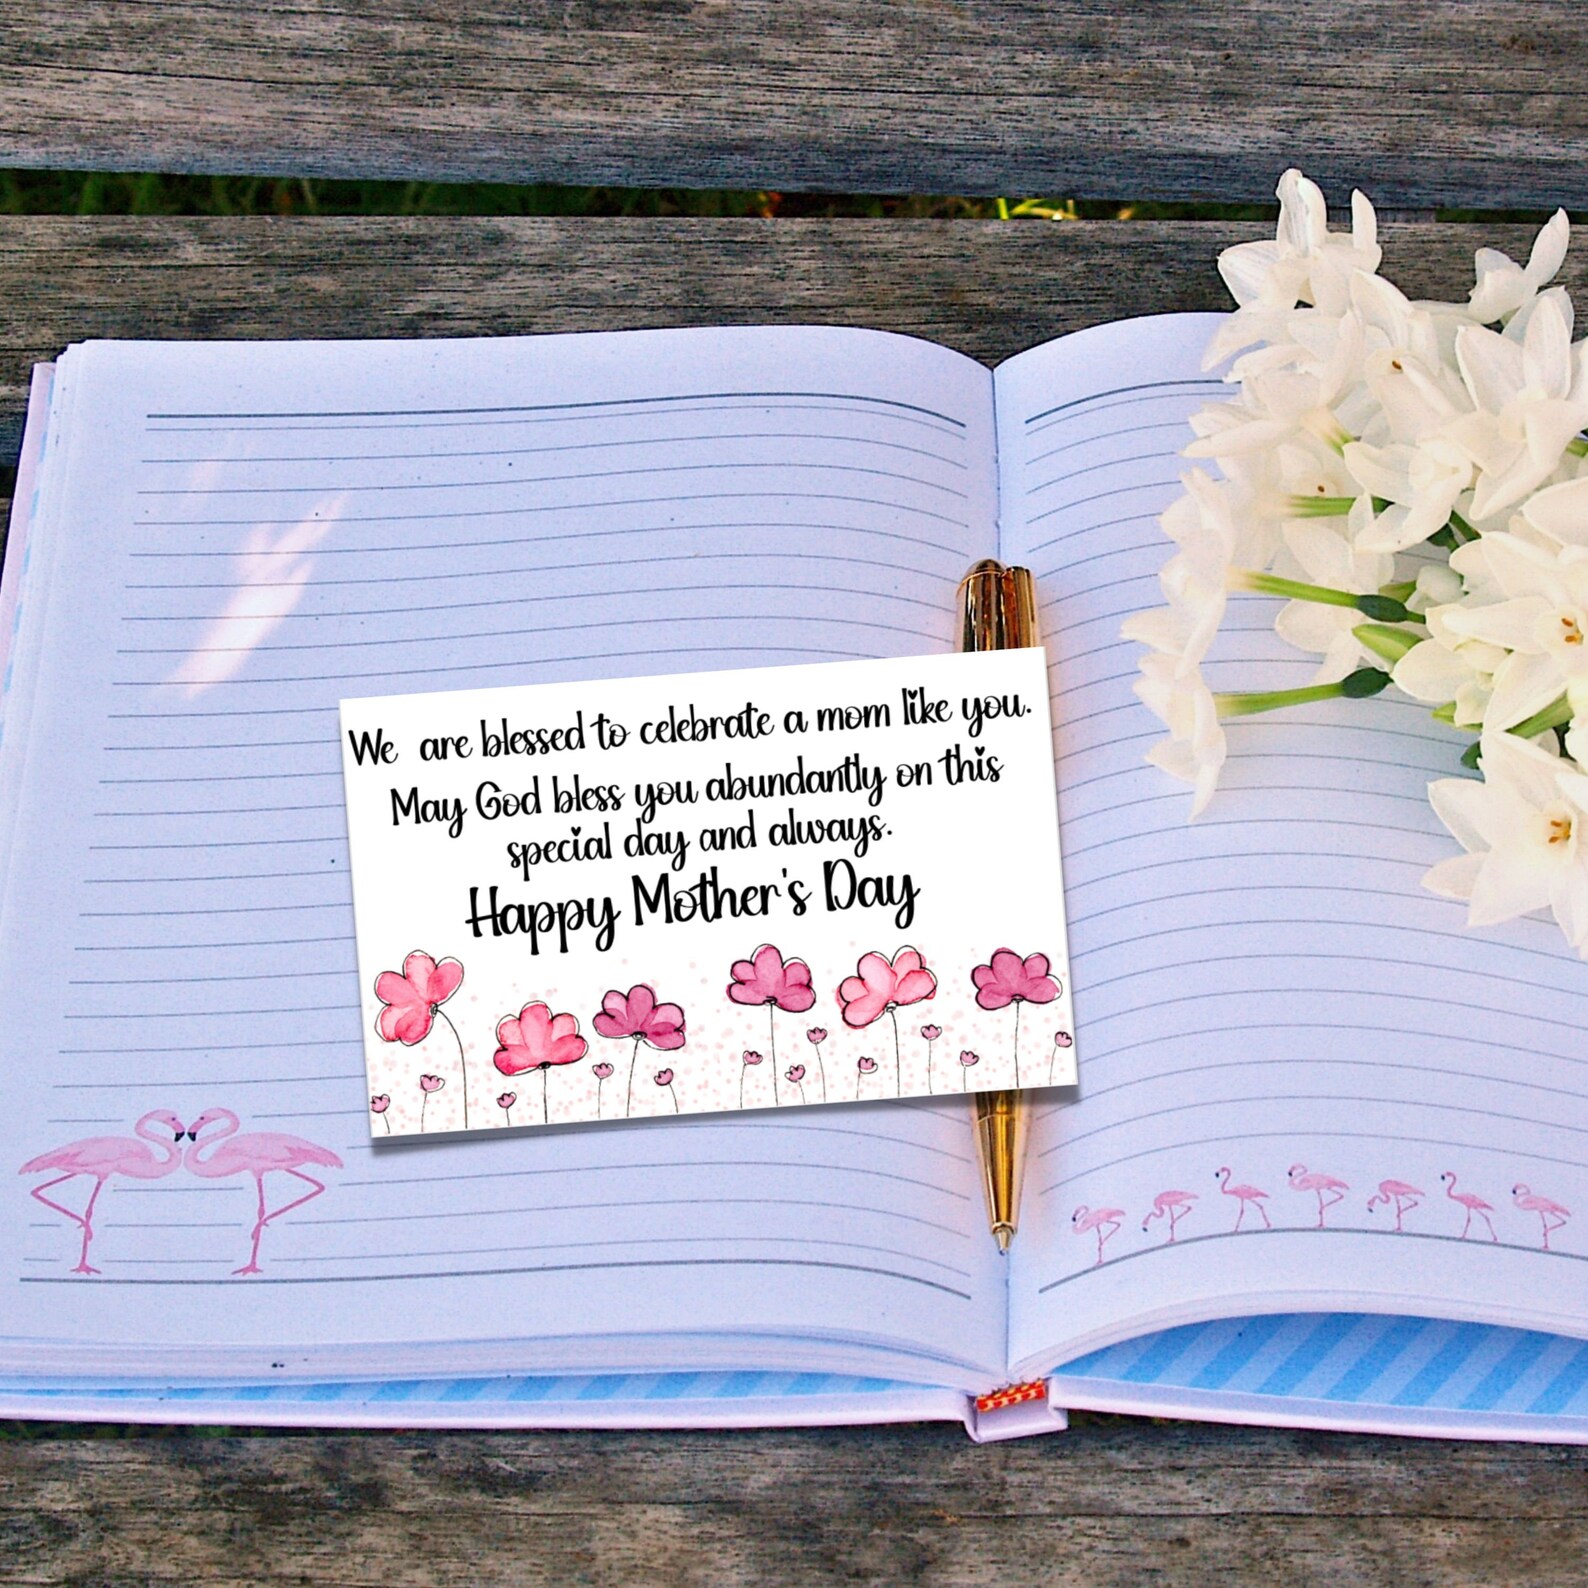 We are blessed to celebrate a mom like you.
May God bless you abundantly on this
special day and always.
Happy Mother's Day